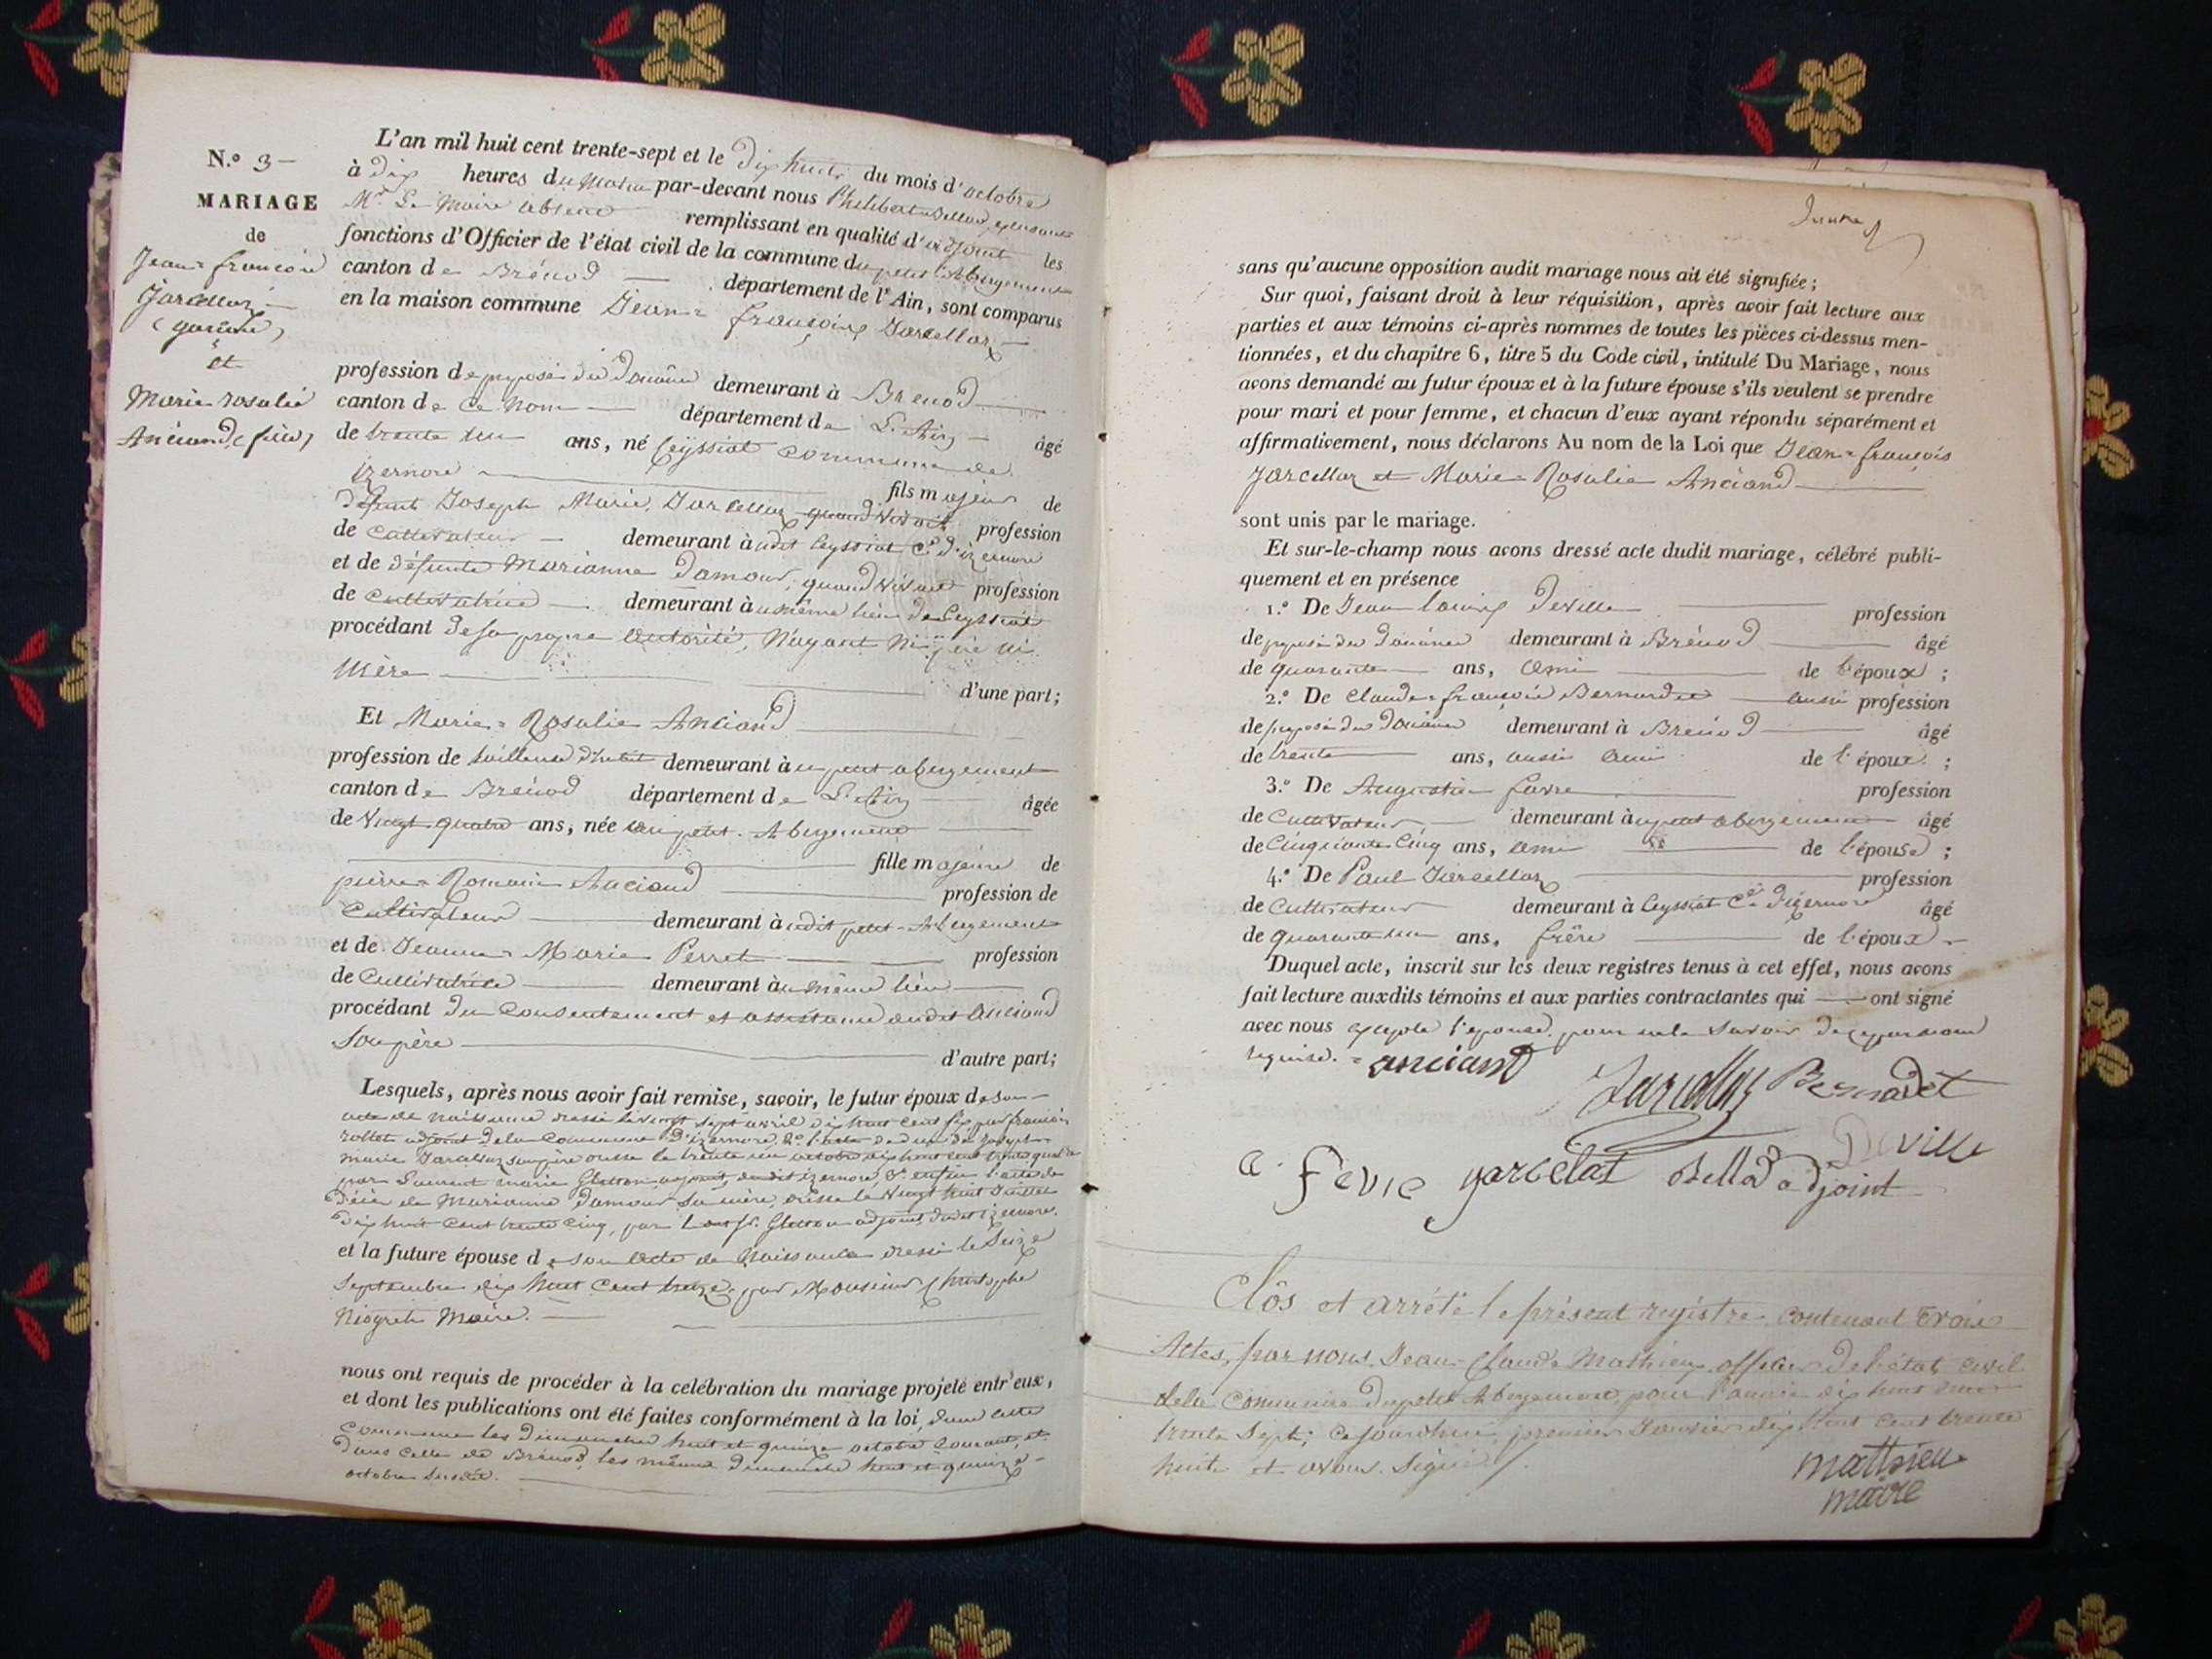 N.o 3
MARIAGE
de
Jean=françois
Jarcellaz
(garçon)
et
Marie rosalie
Anciand, (fille)
L'an mil huit cent trente-sept et le dix huit du mois d'octobre
à dix heures du Matin par-devant nous Philibert Bellod, 
Mr. Le Maire absent remplissant en qualité d'adjoint les
fonctions d'Officier de l'état civil de la commune du petit Abergement
canton de Brénod département de l'Ain, sont comparus
en la maison commune Jean=françois Jarcellaz
profession de préposé des Douanes demeurant à Brenod
canton de Ce Nom département de L'Ain âgé
de trente un ans, né Ceyssiat commune de
izernore fils majeur de
défunt Joseph Marie Jarcellaz quand vivait profession
de Cultivateur demeurant à udit Ceyssiat Cne d'izernore
et de défunte Marianne Damour, quand vivait profession
de Cultivatrice demeurant à u même lieu de Ceyssiat
procédant de sa propre autorité, N'ayant Ni père ni
Mère d'une part;
Et Marie=Rosalie Anciand
profession de tailleuse d'habit demeurant à u petit abergement
canton de Brénod département de L'Ain âgée
de Vingt-quatre ans, née au petit-Abergement
fille majeure de
pierre=Romain Anciand profession de
Cultivateur demeurant à udit petit-Abergement
et de Jeanne=Marie Perret profession
de Cultivatrice demeurant à u même lieu
procédant du Consentement et assistance dudit Anciand
Son père d'autre part;
Lesquels, après nous avoir fait remise, savoir, le futur époux de son
acte de naissance dressé le vingt sept avril dix huit cent six par francois
rollet adjoint de la Commune d'izernore, 2o l'acte de décès de Joseph
marie Jarcellaz son père dressé le trente un octobre dix huit cent trente quatre
par Laurent marie Gletton adjoint, dudit izernore, & enfin l'acte de
décès de Marianne Damour Sa mère, dressé le Vingt huit Juillet
dix huit cent trente Cinq, par Gletton adjoint, dudit izernore.
et la future épouse de son acte de Naissance dressé le Seize
Septembre dix huit Cent treize par Monsieur Christophe
Niogret Maire.
nous ont requis de procéder à la celébration du mariage projeté entr'eux,
et dont les publications ont été faites conformément à la loi, dans cette
Commune les dimanches huit et quinze octobre Courant, et
dans celle de Brénod, les mêmes dimanches huit et quinze
octobre susdit.
sans qu'aucune opposition audit mariage nous ait été signifiée;
Sur quoi, faisant droit à leur réquisition, après avoir fait lecture aux
parties et aux témoins ci-après nommes de toutes les pièces ci-dessus men-
tionnées, et du chapitre 6, titre 5 du Code civil, intitulé Du Mariage, nous
avons demandé au futur époux et à la future épouse s'ils veulent se prendre
pour mari et pour femme, et chacun d'eux ayant répondu séparément et
affirmativement, nous déclarons Au nom de la Loi que Jean=françois
Jarcellaz et Marie=Rosalie Anciand
sont unis par le mariage.
Et sur-le-champ nous avons dressé acte dudit mariage, célébré publi-
quement et en présence
1.o De Jean louis Deville profession
de préposé des Douanes demeurant à Brénod âgé
de quarante ans, ami de l'époux;
2.o De Claude=françois Bernardet aussi profession
de préposé des Douanes demeurant à Brénod âgé
de trente ans, aussi ami de l'époux;
3.o De Augustin favre profession
de Cultivateur demeurant à u petit abergement âgé
de Cinquante Cinq ans, ami de l'épouse;
4.o De Paul Jarcellaz profession
de Cultivateur demeurant à Ceyssiat Cne d'izernore âgé
de quarante un ans, frère de l'époux.
Duquel acte, inscrit sur les deux registres tenus à cet effet, nous avons
fait lecture auxdits témoins et aux parties contractantes qui ont signé
avec nous excepté l'épouse pour ne le Savoir de ce par nous
requise. anciand
Jarcellaz Bernadet
Deville
a. fevre garcelat Bellod adjoint
Clôs et arrêté le présent registre contenant trois
Actes, par nous Jean-Claude Mathieu officier de l'état civil
de la Commune du petit Abergement, pour l'année dix huit cent
trente Sept; Ce Jourdhui premier Janvier dix huit Cent trente
huit et avons signé.
matthieu
maire